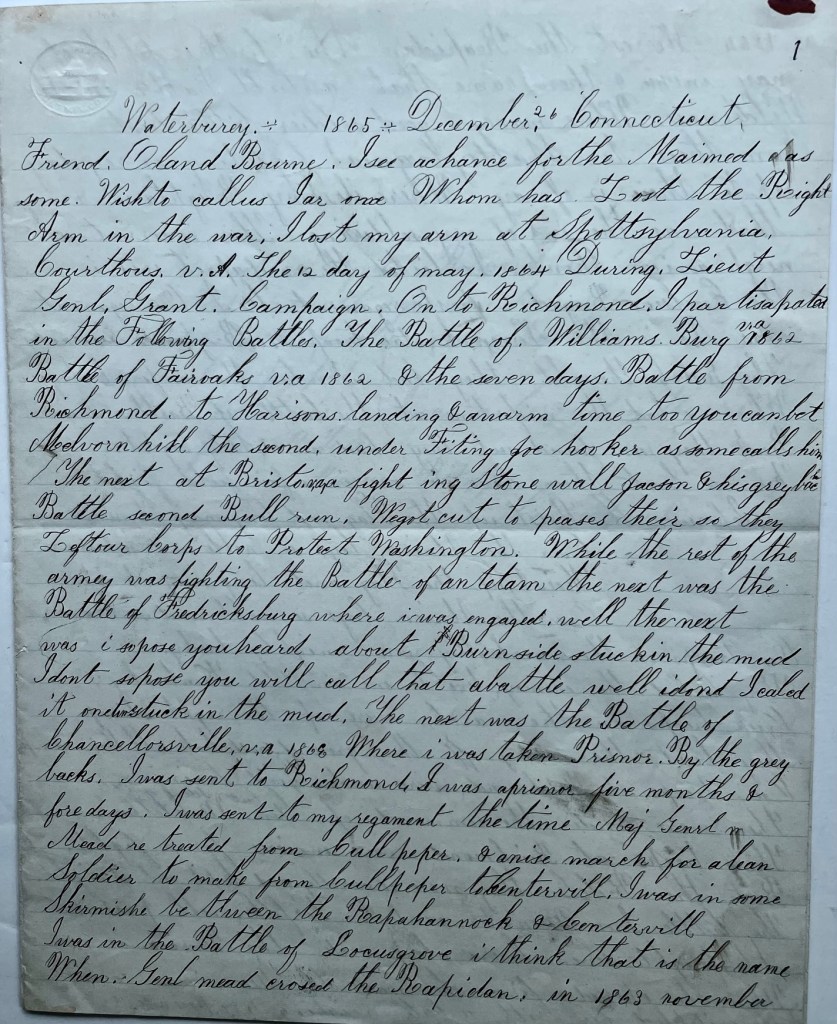 1
Waterburey. ÷ 1865 ÷ December, 26 Connecticut,
Friend. Oland Bourne. I see achance forthe Maimed as
some. Wish to callus Iar one Whom has Lost the Right
Arm in the war, I lost my arm at Spottsylvania,
Courthous. v.A. The 12 day of may. 1864 During. Lieut
Genl, Grant. Campaign. On to Richmond. I partisapated
in the Following Battles. The Battle of. Williams. Burg v.a 1862
Battle of Fairoaks v.a 1862 & the seven days. Battle from
Richmond. to Harisons. landing & awarm time too youcanbet
Melvornhill the second. under Fiting Joe hooker as somecalls him
The next at Bristo. v.a fight ing Stone wall Jacson & hisgrey
Battle second Bull run. Wegot cut to peases their so they
Leftour Corps to Protect Washington. While the rest of the
armey was fighting the Battle of antetam the next was the
Battle of Fredricksburg where i was engaged. well the next
was i sopose youheard about Burnside stuckin the mud
I dont sopose you will call that abattle well idont I caled
it stuck in the mud. The next was the Battle of
Chancellorsville, v.a 1863 Where i was taken Prisnor. By the grey
backs. Iwas sent to Richmond, I was aprisnor five months &
fore days. Iwas sent to my regament the time Maj Genrl
Mead re treated from Cull peper. & anise march for alean
Soldier to make from Cullpeper to Centervill. Iwas in some
Skirmishe be tween the Rapahannock & Centervill
Iwas in the Battle of Locusgrove i think that is the name
When. Genl mead crosed the Rapidan. in 1863 november